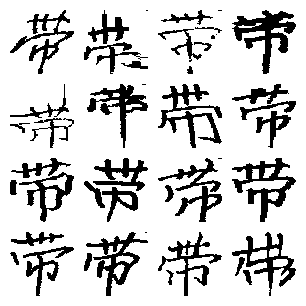 带带带带
带带带带
带带带带
带带带带